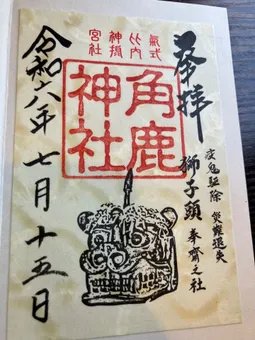 氣比神宮
式内摂社
奉拝
疫鬼駆除 災難退失
獅子頭 奉齋之社
角鹿
神社
令和六年七月十五日